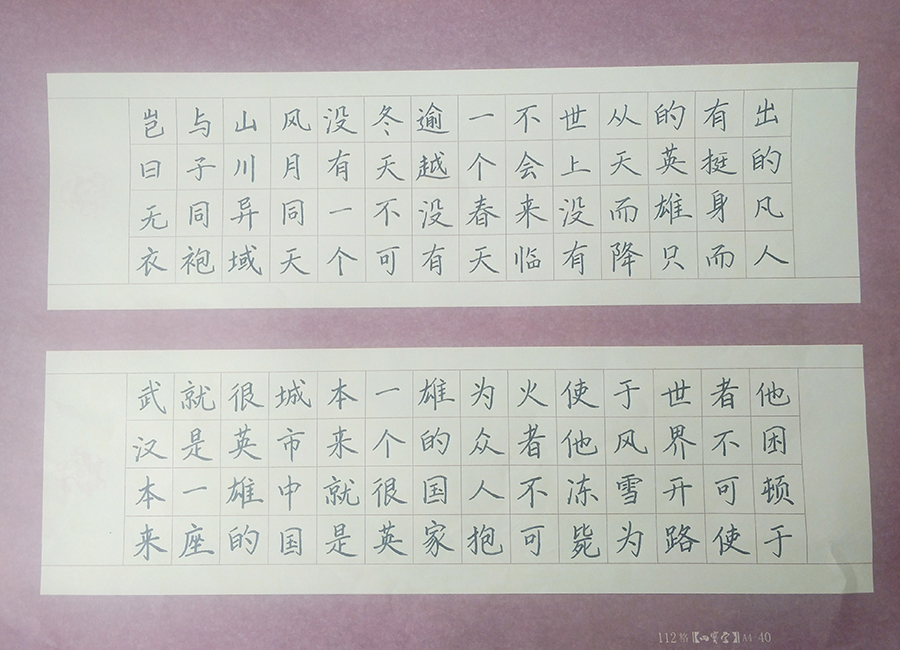 岂曰无衣
与子同袍
山川异域
风月同天
没有一个
冬天不可
逾越没有
一个春天
不会来临
世上没有
从天而降
的英雄只
有挺身而
出的凡人
武汉本来
就是一座
很英雄的
城市中国
本来就是
一个很英
雄的国家
为众人抱
火者不可
使他冻毙
于风雪为
世界开路
者不可使
他困顿于
112格【】A4 40